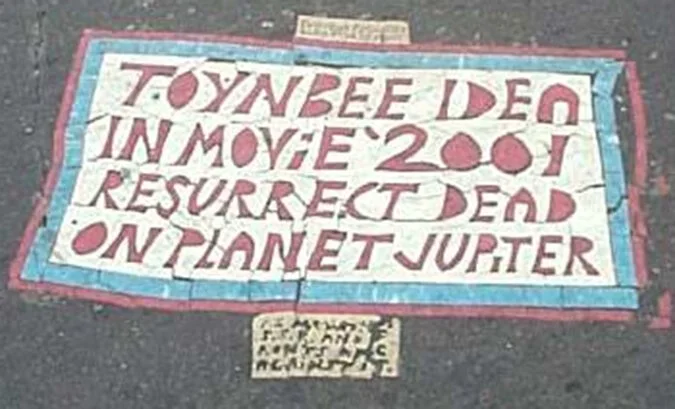 TOYNBEE IDEA
IN MOViE `2001
RESURRECT DEAD
ON PLANET JUPiTER